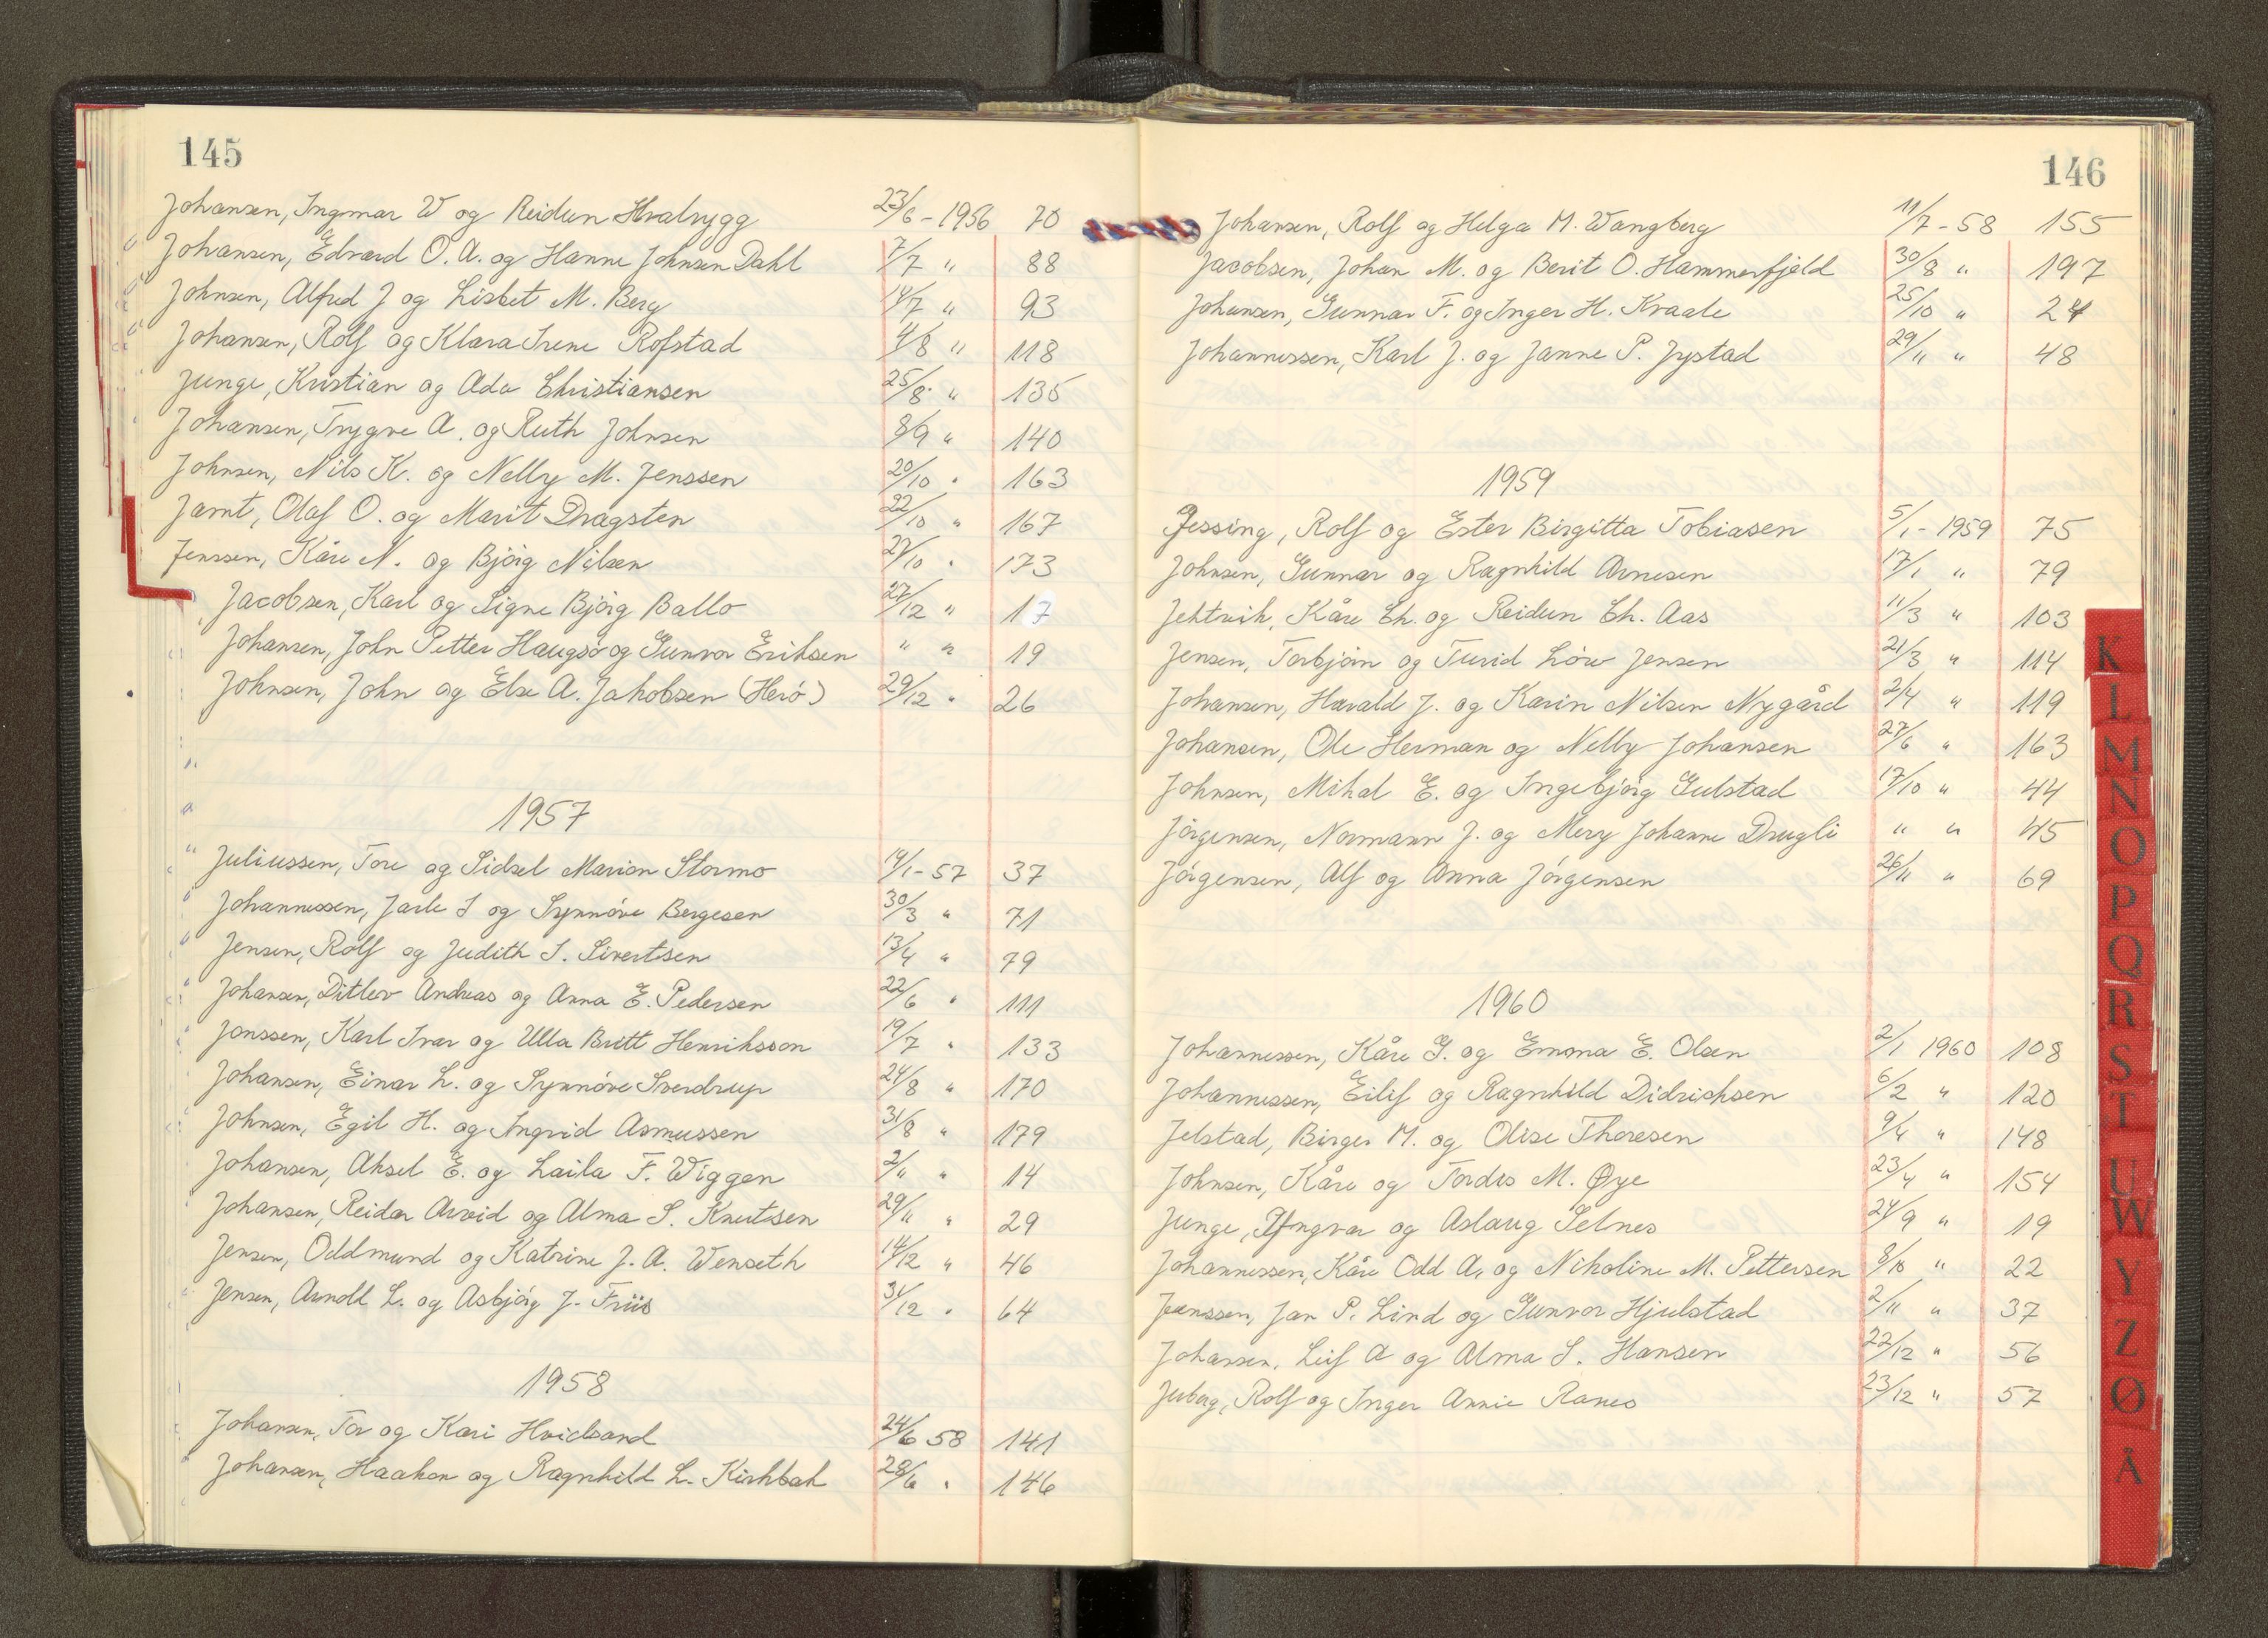 145
Johansen, Ingmar W og Reidun Hvalrygg 23/6 - 1956 70
Johansen, Edvard O. A. og Hanne Johnsen Dahl 7/7 " 88
Johnsen, Alfred J og Lisbet M. Berg 14/7 " 93
Johansen, Rolf og Klara Irene Rofstad 4/8 " 118
Junge, Kristian og Ada Christiansen 25/8 " 135
Johansen, Trygve A. og Ruth Johnsen 8/9 " 140
Johnsen, Nils K. og Nelly M. Jenssen 20/10 " 163
Jamt, Olaf O. og Marit Dragsten 22/10 " 167
Jenssen, Kåre N. og Bjørg Nilsen 27/10 " 173
Jacobsen, Karl og Signe Bjørg Ballo 27/12 " 17
Johansen, John Petter Haugsø og Gunvor Eriksen " " 19
Johnsen, John og Else A. Jakobsen (Herø) 29/12 " 26
1957
Juliussen, Tore og Sidsel Marion Stormo 19/1 - 57 37
Johannessen, Jarle S og Synnøve Bergesen 30/3 " 71
Jensen, Rolf og Judith S. Sivertsen 13/4 " 79
Johansen, Ditlev Andreas og Anna E. Pedersen 22/6 " 111
Jonssen, Karl Ivar og Ulla Britt Henriksson 19/7 " 133
Johansen, Einar L. og Synnøve Sverdrup 24/8 " 170
Johnsen, Egil H. og Ingrid Asmussen 31/8 " 179
Johansen, Aksel E. og Laila F. Wiggen 2/11 " 14
Johansen, Reidar Arvid og Alma S. Knutsen 29/11 " 29
Jensen, Oddmund og Katrine J. A. Wenseth 14/12 " 46
Jensen, Arnoll L. og Asbjørg J. Friis 31/12 " 64
1958
Johansen, Tor og Kari Hvidsand 24/6 58 141
Johansen, Haakon og Ragnhild L. Kirkbak 28/6 " 146
146
Johansen, Rolf og Helga M. Wangberg 11/7 - 58 155
Jacobsen, Johan M. og Berit O. Hammerfjeld 30/8 " 197
Johansen, Gunnar F. og Inger H. Kraale 25/10 " 24
Johannessen, Karl J. og Janne P. Jystad 29/11 " 48
1959
Jessing, Rolf og Ester Birgitta Tobiasen 5/1 - 1959 75
Johnsen, Gunnar og Ragnhild Arnesen 17/1 " 79
Jektvik, Kåre Ch. og Reidun Ch. Aas 11/3 " 103
Jensen, Torbjørn og Turid Løw Jensen 21/3 " 114
Johansen, Harald J. og Karin Nilsen Nygård 2/4 " 119
Johansen, Ole Herman og Nelly Johansen 27/6 " 163
Johnsen, Mikal E. og Ingebjørg Gulstad 17/10 " 44
Jørgensen, Normann J. og Mery Johanne Drugli " " 45
Jørgensen, Alf og Anna Jørgensen 26/11 " 69
1960
Johannessen, Kåre G. og Emma E. Olsen 2/1 1960 108
Johannessen, Eilif og Ragnhild Didriksen 6/2 " 120
Jelstad, Birger M. og Olise Thoresen 9/4 " 148
Johnsen, Kåre og Tordis M. Øye 23/4 " 154
Junge, Yngvar og Aslaug Selnes 24/9 " 19
Johannessen, Kåre Odd A. og Nikoline M. Pettersen 8/10 " 22
Janssen, Jan P. Lind og Gunvor Hjulstad 2/11 " 37
Johansen, Leif A og Alma S. Hansen 22/12 " 56
Juberg, Rolf og Inger Annie Ranes 23/12 " 57
K
L
M
N
O
P
Q
R
S
T
U
W
Y
Z
Ø
Å